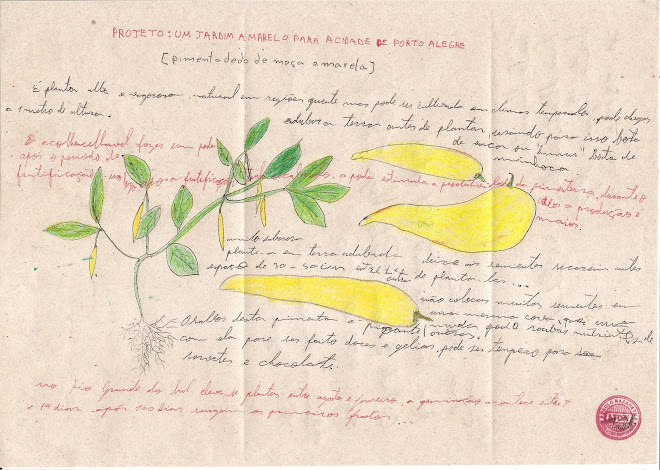 PROJETO: UM JARDIM AMARELO PARA A CIDADE DE PORTO ALEGRE
[pimenta dedo de moça amarela]
É planta alta e vigorosa, natural em regiões quente mas pode ser cultivada em climas temperados, pode chegar
a 1 metro de altura.
adubar a terra antes de plantar, usando para isso bota
de vaca ou "humus" bota de
minhoca
É fazer um poda
após o periodo de
frutificação
a poda estimula a produtividade da pimenteira, durante o
a produção é
maior.
muito saborosa
plante-a em terra adubada
espaço de 30-50 cm entre
deixe as sementes secarem antes
de planta-las...
não colocar muitas sementes em
uma mesma cova, pois uma
muda pode roubar nutriente da
outra.
O sabor desta pimenta é picante
com ela pode ser feito doces e geleias, pode ser tempero para
sorvetes e chocolate.
no Rio Grande do Sul deve-se plantar entre agosto e janeiro, a germinação acontece entre 7
e 14 dias após 100 dias surgem os primeiros frutos...